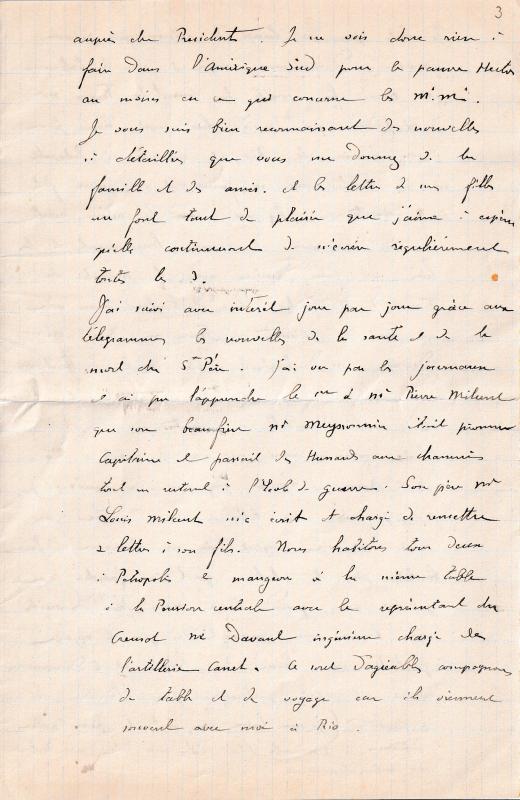 3
auprès du Président. Je ne vois donc rien à
faire dans l'Amérique Sud pour le pauvre Hector
au moins en ce qui concerne les
Je vous suis bien reconnaissant des nouvelles
si détaillées que vous me donnez de la
famille et des amis. et les lettres de mes filles
me font tant de plaisir que j'aime à espérer
qu'elles continueront de m'écrire régulièrement
toutes les 3.
J'ai suivi avec intérêt jour par jour grâce aux
télégrammes les nouvelles de la santé et de la
mort du St Père. J'ai vu par les journaux
et ai pu l'apprendre le à Mr Pierre
que son beau frère Mr Meyssonnier était promu
Capitaine et passait des Hussards aux chasseurs
tout en restant à l'Ecole de guerre. Son père Mr
Louis m'a écrit et chargé de remettre
2 lettres à son fils. Nous habitons tous deux
à Petropolis et mangeons à la même table
à la Pension centrale avec le représentant du
Creusot Mr Davant ingénieur chargé de
l'artillerie Canet. Ce sont d'agréables compagnons
de table et de voyage car ils viennent
souvent avec moi à Rio.